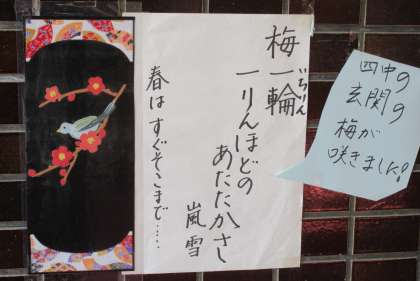 梅一輪
いちりん
一りんほどの
あたたかさ
嵐雪
春は すぐそこまで……
四中の
玄関の
梅が
咲きました!